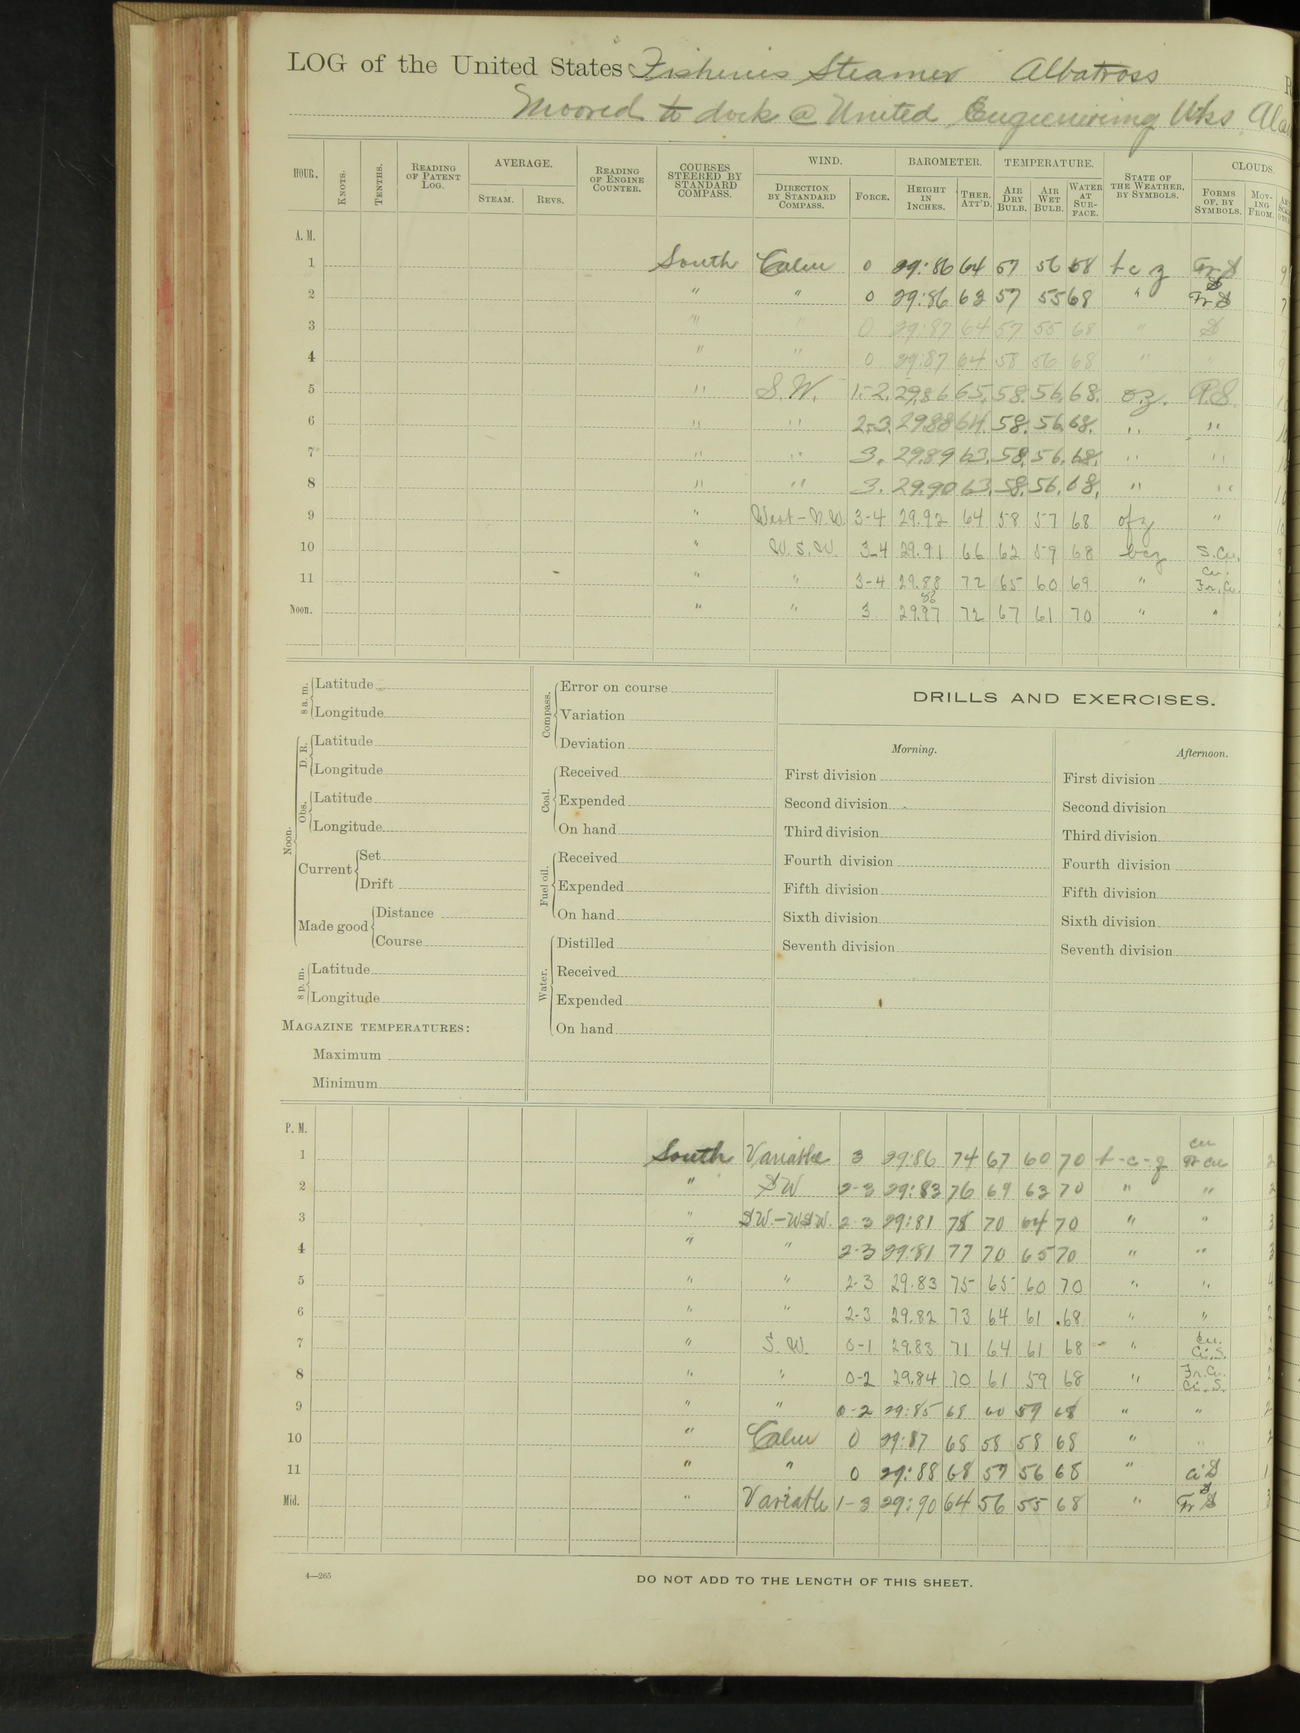 LOG of the United States Fisheries Steamer Albatross
Moored to dock @ United Engineering Wks. Ala
HOUR. KNOTS. TENTHS. READING OF PATENT LOG. AVERAGE. STEAM. REVS. READING OF ENGINE COUNTER. COURSES STEERED BY STANDARD COMPASS. WIND. DIRECTION BY STANDARD COMPASS. FORCE. BAROMETER. HEIGHT IN INCHES. THER. ATT'D. TEMPERATURE. AIR DRY BULB. AIR WET BULB. WATER AT SURFACE. STATE OF THE WEATHER, BY SYMBOLS. CLOUDS. FORMS OF, BY SYMBOLS. MOVING FROM.
A. M.
1 South Calm 0 29:86 64 57 56 68 b c z Fr S 9
2 " " 0 29:86 63 57 55 68 " S Fr S 7
3 " " 0 29:87 64 57 55 68 " S
4 " " 0 29:87 64 58 56 68 " "
5 " S.W. 1-2. 29.86 65. 58. 56. 68. o.z. P.S.
6 " " 2-3. 29.88 64. 58. 56. 68. " "
7 " " 3. 29.89 63. 58. 56. 68. " "
8 " " 3. 29.90 63. 58. 56. 68. " "
9 " West-N.W. 3-4 29.92 64 58 57 68 ofz "
10 " W.S.W. 3-4 29.91 66 62 59 68 bcz S.Cu. 9
11 " " 3-4 29.88 72 65 60 69 " Cu. Fr.Cu. 3
Noon. " " 3 29.87 86 72 67 61 70 " " 2
8 a. m. Latitude
Longitude
Noon. D. R. Latitude
Longitude
Obs. Latitude
Longitude
Current Set
Drift
Made good Distance
Course
8 p. m. Latitude
Longitude
MAGAZINE TEMPERATURES:
Maximum
Minimum
Compass. Error on course
Variation
Deviation
Coal. Received
Expended
On hand
Fuel oil. Received
Expended
On hand
Water. Distilled
Received
Expended
On hand
DRILLS AND EXERCISES.
Morning.
First division
Second division
Third division
Fourth division
Fifth division
Sixth division
Seventh division
Afternoon.
First division
Second division
Third division
Fourth division
Fifth division
Sixth division
Seventh division
P. M.
1 South Variable 3 29:86 74 67 60 70 b-c-z cu fr cu 2
2 " SW 2-3 29:83 76 69 63 70 " " 2
3 " SW.-WSW. 2-3 29:81 78 70 64 70 " " 3
4 " " 2-3 29:81 77 70 65 70 " " 3
5 " " 2-3 29.83 75 65 60 70 " " 4
6 " " 2-3 29.82 73 64 61 .68 " " 2
7 " S.W. 0-1 29.83 71 64 61 68 " Cu. Ci.S.
8 " " 0-2 29.84 70 61 59 68 " Fr.Cu. Ci.S.
9 " " 0-2 29:85 68 60 59 68 " " 2
10 " Calm 0 29:87 68 58 58 68 " " 2
11 " " 0 29:88 68 57 56 68 " Ci S 1
Mid. " Variable 1-3 29:90 64 56 55 68 " S Fr S 3
4—265
DO NOT ADD TO THE LENGTH OF THIS SHEET.